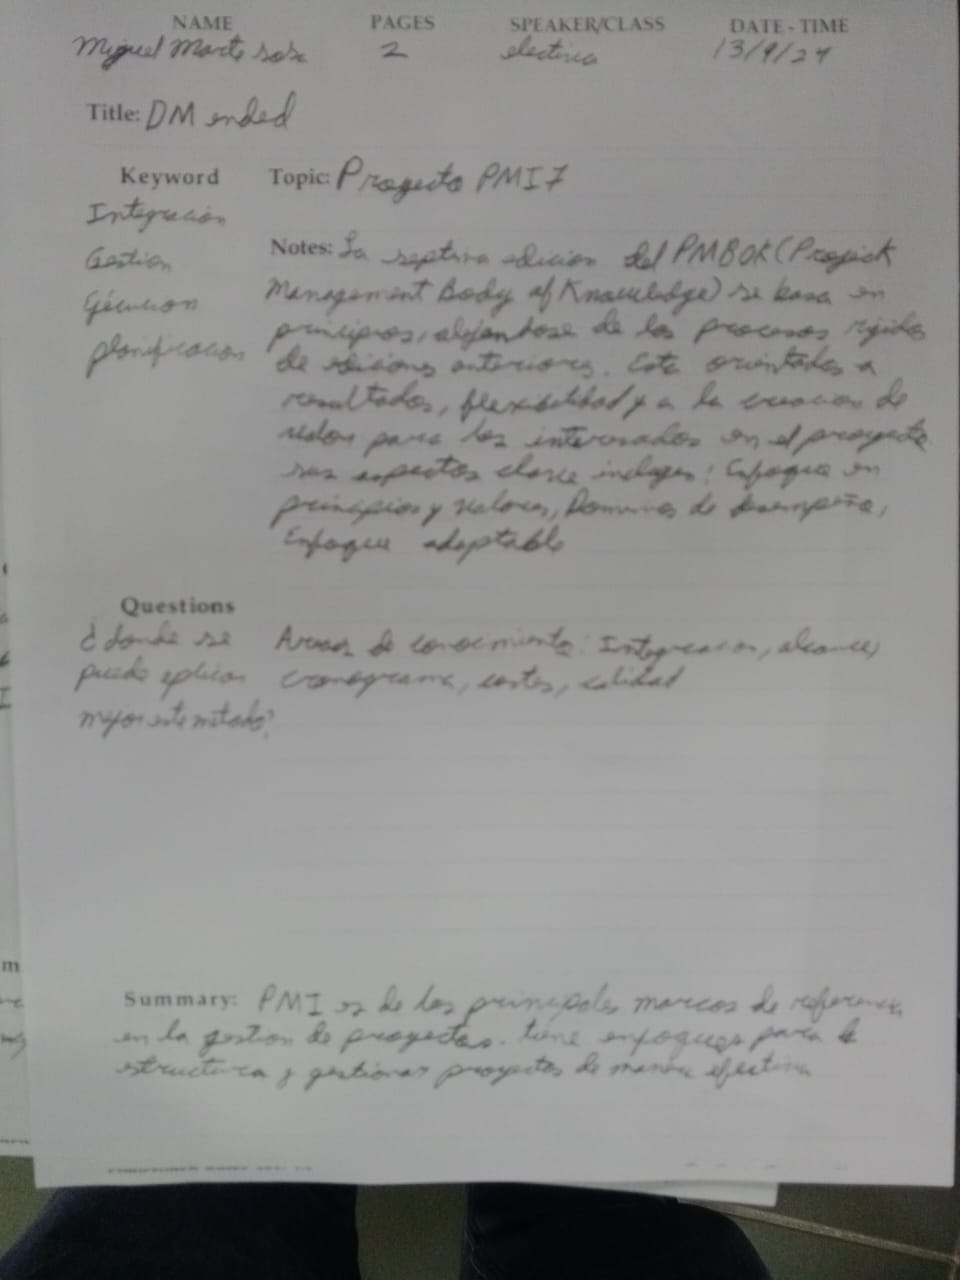 NAME PAGES SPEAKER/CLASS DATE - TIME
Miguel Marte sosa 2 electiva 13/9/24
Title: DM ended
Keyword Topic: Proyecto PMI 7
Integración
Gestion
Ejecucion
planificacion
Notes: La septima edicion del PMBOK (Projeck
Management Body of Knowledge) se basa en
principios, alejandose de los procesos rigidos
de ediciones anteriores. Esta orientados a
resultados, flexibilidad y a la creacion de
valor para los interesados en el proyecto
sus aspectos clave incluyen: Enfoque en
principios y valores, Dominios de desempeño,
Enfoque adaptable
Questions
¿donde se
puede aplicar
mejor este metodo?
Areas de conocimiento: Integracion, alcance,
cronograma, costes, calidad
Summary: PMI es de los principales marcos de referencia
en la gestion de proyectos. tiene enfoques para
estructura y gestionar proyectos de manera efectiva